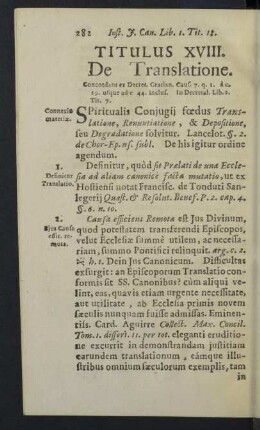 282 Inst. J. Can. Lib. 1. Tit. 18.
TITULUS XVIII.
De Translatione.
Concordant ex Decret. Gratian. Cauſ. 7. q. 1. à c.
19. usque ad c. 44. incluſ. In Decretal. Lib. 1.
Tit. 7.
Connexio
materiæ.
SPiritualis Conjugij fœdus Trans-
latione, Renuntiatione, & Depositione,
ſeu Degradatione ſolvitur. Lancelot. §. 2.
de Chor-Ep. nſ. ſubl. De his igitur ordine
agendum.
1.
Definitur
Translatio.
Definitur, quòd ſit Prælati de una Eccle-
ſia ad aliam canonicè facta mutatio, ut ex
Hoſtienſi notat Franciſc. de Tonduti San-
legerij Quæſt. & Reſolut. Benef. P. 2. cap. 4.
§. 6. n. 10.
2.
Ejus Cauſa
effic. re-
mota.
Cauſa efficiens Remota eſt Jus Divinum,
quod poteſtatem transferendi Epiſcopos,
velut Eccleſiæ ſummè utilem, ac neceſſa-
riam, ſummo Pontifici relinquit. arg. c. 2.
h. t. Dein Jus Canonicum. Difficultas
exſurgit: an Epiſcoporum Translatio con-
formis ſit SS. Canonibus? cùm aliqui ve-
lint, eas, quavis etiam urgente neceſſitate,
aut utilitate, ab Eccleſia primis novem
ſæculis nunquam fuiſſe admiſſas. Eminen-
tiſſ. Card. Aguirre Collect. Max. Concil.
Tom. 1. diſſert. 11. per tot. eleganti eruditio-
ne excurrit in demonſtrandam juſtitiam
earundem translationum, eámque illu-
ſtribus omnium ſæculorum exemplis, tam
in